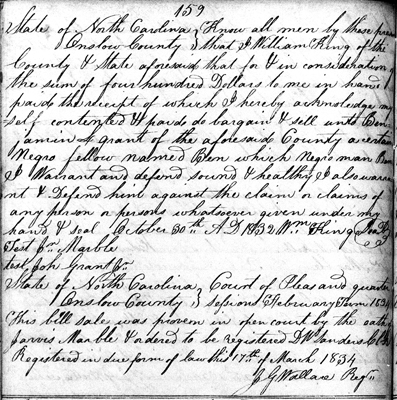 159
State of North Carolina } Know all men by these pre
Onslow County } that I William King of the
County & State aforesaid that for & in consideration
the sum of four hundred Dollars to me in hand
paid the receipt of which I hereby acknowledge my
self contented & paid do bargain & sell unto Ben
jamin grant of the aforesaid County a certain
Negro fellow named Ben which Negro man Ben
I Warrant and defend sound & healthy I also warra
nt & Defend him against the claim or claims of
any person or persons whatsoever given under my
hand & seal October 30th A.D. 1832 Wm King Seal
Test Jrs Marble
test Joh Grant Jr
State of North Carolina } Court of Pleas and quarter
Onslow County } Sessions February Term 1834
This bill sale was proven in open court by the oath
Jarvis Marble & ordered to be registered D W Sanders Clk
Registered in due form of law this 17th of March 1834
J G Wallace Regr